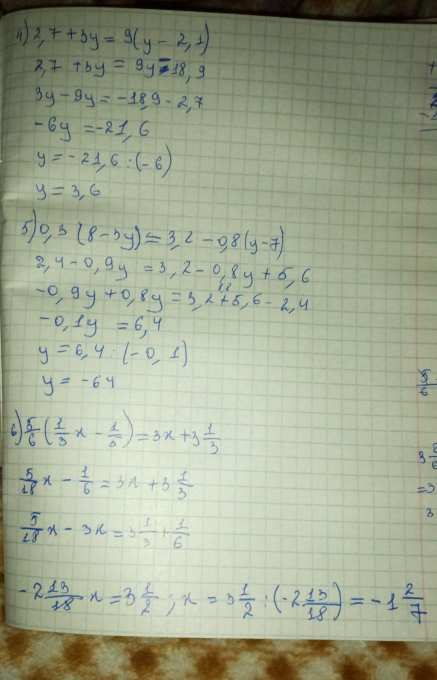 4) 2,7 + 3y = 9(y - 2,1)
2,7 + 3y = 9y - 18,9
3y - 9y = -18,9 - 2,7
-6y = -21,6
y = -21,6 : (-6)
y = 3,6
5) 0,3 (8 - 3y) = 3,2 - 0,8(y - 7)
2,4 - 0,9y = 3,2 - 0,8y + 5,6
-0,9y + 0,8y = 3,2 + 5,6 - 2,4
-0,1y = 6,4
y = 6,4 : (-0,1)
y = -64
6) 5/6 (1/3 x - 1/5) = 3x + 3 1/3
5/18 x - 1/6 = 3x + 3 1/3
5/18 x - 3x = 3 1/3 + 1/6
-2 13/18 x = 3 1/2 ; x = 3 1/2 : (-2 13/18) = -1 2/7